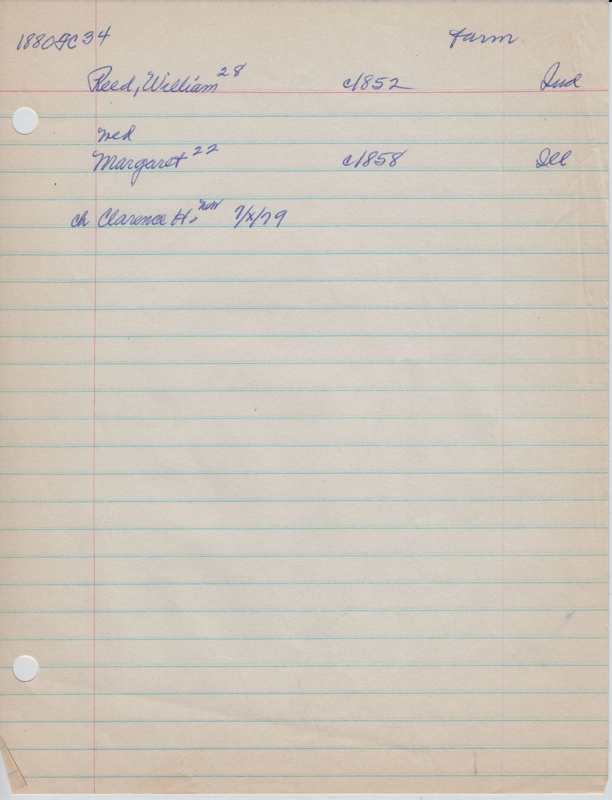 1880FC34 Farm
Reed, William 28 c1852 Ind
wed
Margaret 22 c1858 Ill
ch Clarence H. 7/X/79